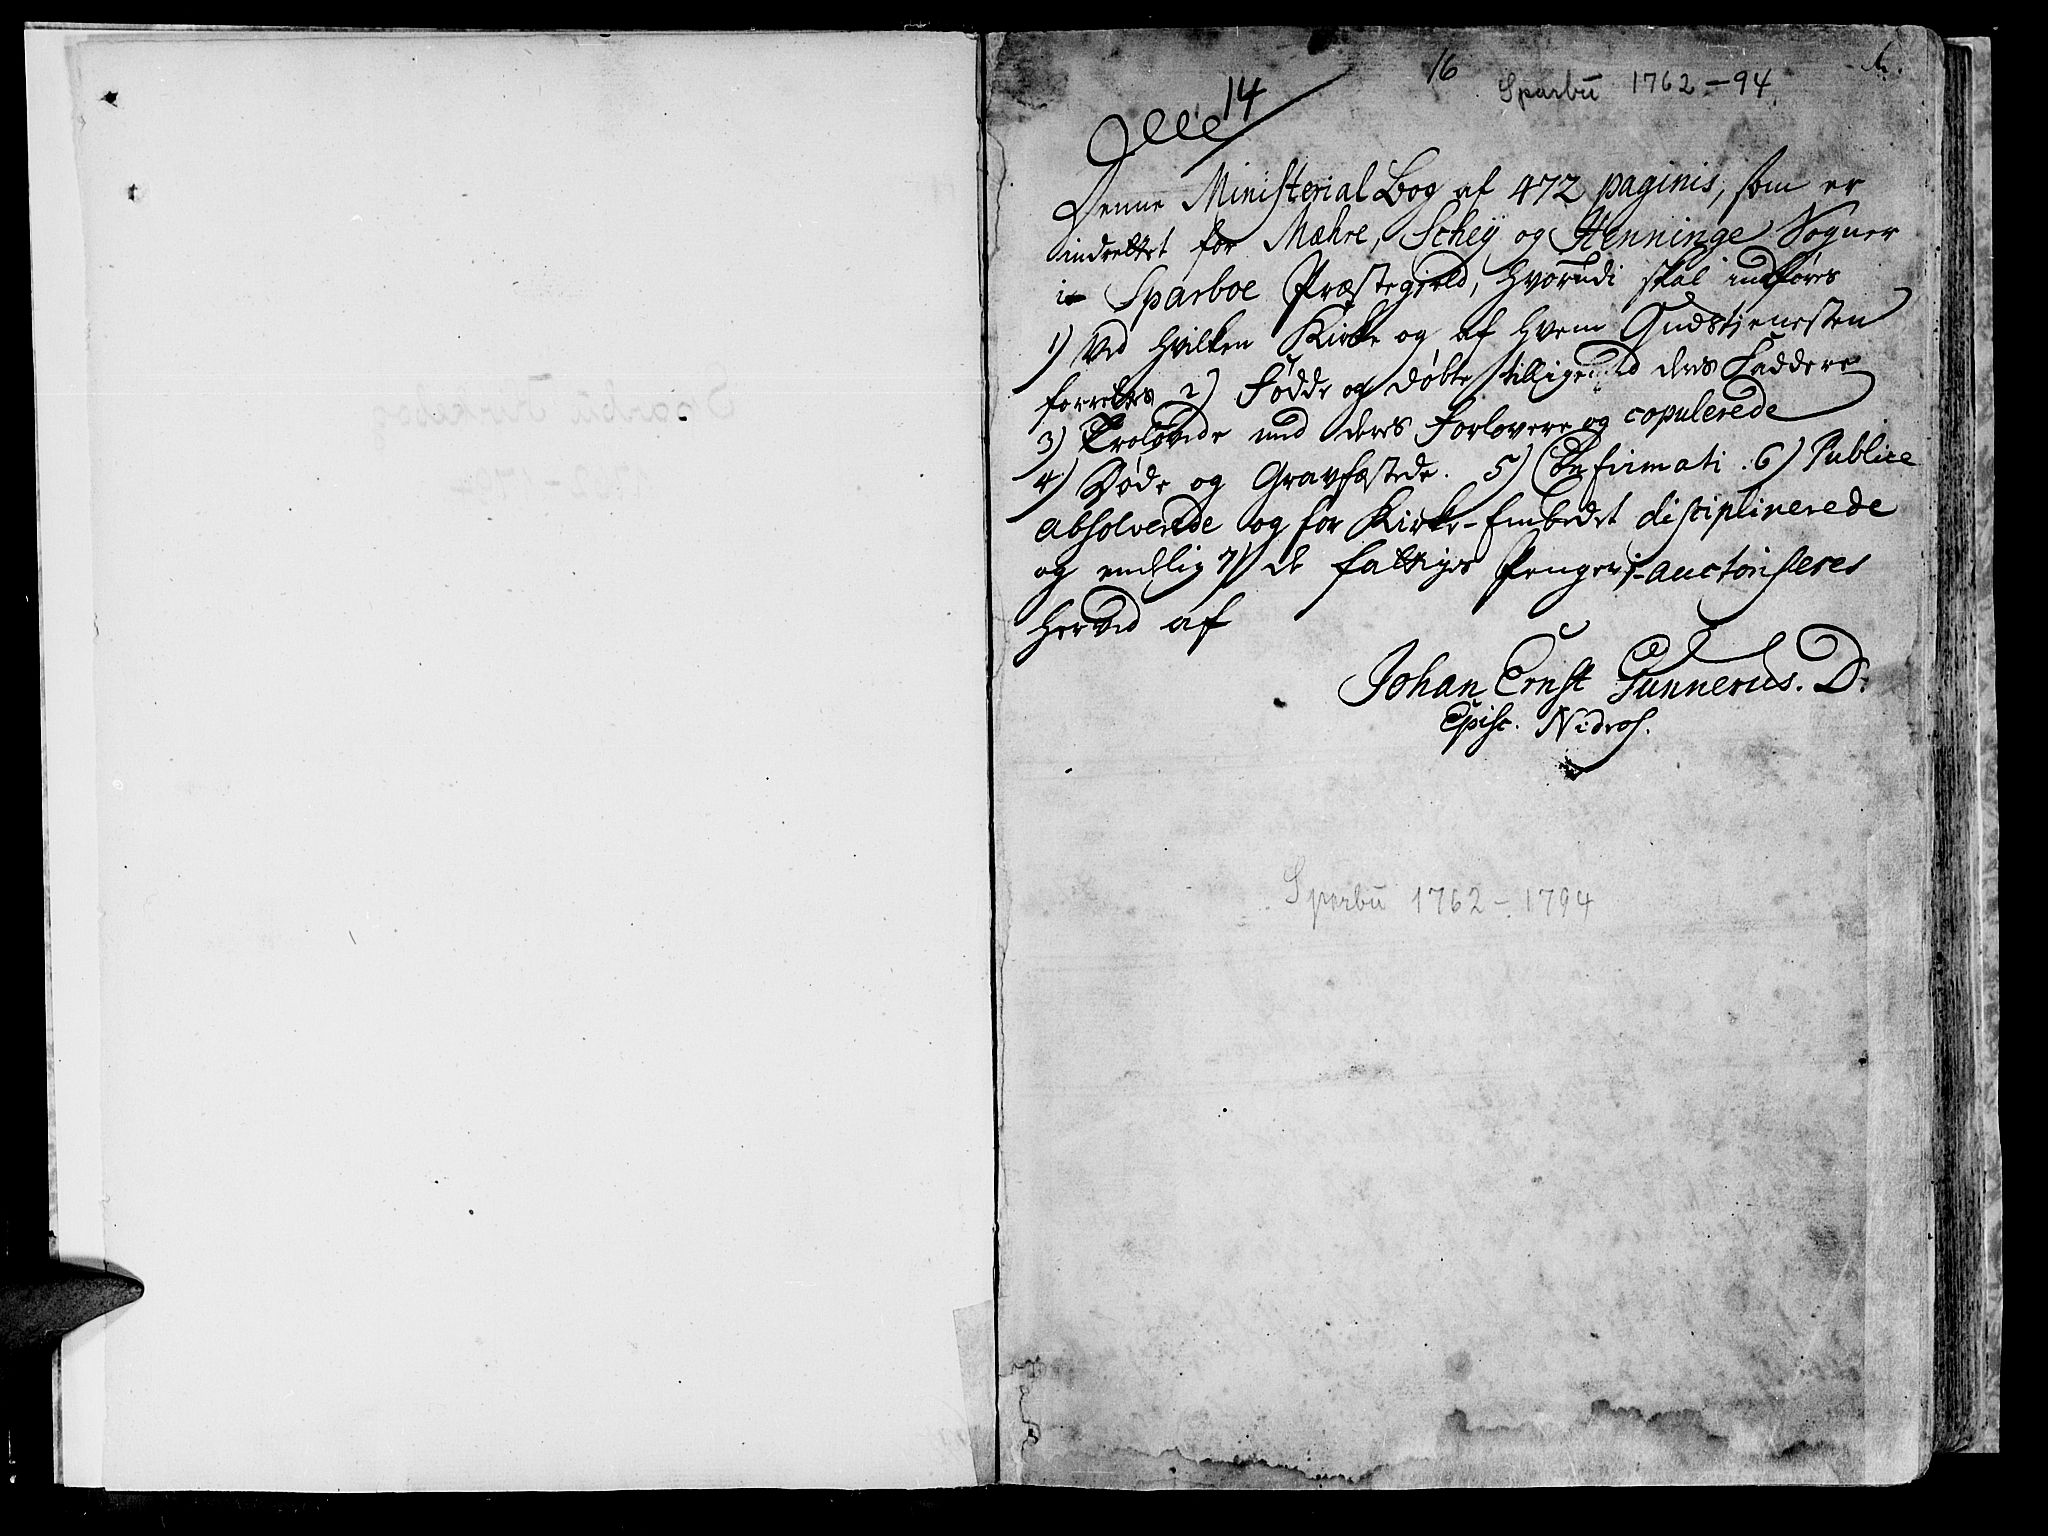 16
Sparbu 1762-94.
14
Denne Ministerial Bog af 472 paginis, som er
indrettet for Mæhre, Schey og Henninge Sogner
i Sparboe Præstegield, hvorudi skal indføres
1) Ved hvilken Kirke og af hvem Gudstienesten
forrettes 2) Fødde og døbte tilligemed deres Faddere
3) Trolovede med deres Forlovere og copulerede
4) Døde og Gravfæstede. 5) Confirmati. 6) Publice
absolverede og for Kirke-Embedet disciplinerede
og endelig 7) de fattiges Penger, auctoriseres
herved af
Johan Ernst Gunnerus. D.
Episc. Nidros.
Sparbu 1762-1794